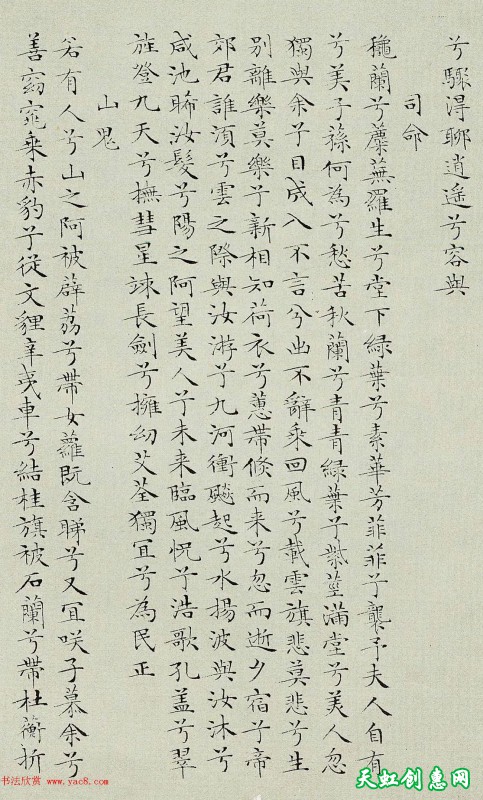 兮驟淂聊逍遥兮容與
司命
穐蘭兮蘪蕪羅生兮堂下綠葉兮素華芳菲菲兮襲予夫人自有
兮美子蓀何為兮愁苦秋蘭兮青青綠葉兮紫莖滿堂兮美人忽
獨與余兮目成入不言兮出不辭乘回風兮載雲旗悲莫悲兮生
别離樂莫樂兮新相知荷衣兮蕙帶倏而来兮忽而逝夕宿兮帝
郊君誰湏兮雲之際與汝游兮九河衝飈起兮水揚波與汝沐兮
咸池晞汝髮兮陽之阿望美人兮未来臨風怳兮浩歌孔盖兮翠
旌登九天兮撫彗星竦長劍兮擁幼艾荃獨冝兮為民正
山鬼
若有人兮山之阿被薜荔兮帶女蘿既含睇兮又冝咲子慕余兮
善窈窕乘赤豹兮從文貍辛夷車兮結桂旗被石蘭兮帶杜蘅折
书法欣赏 www.yac8.com
天虹创惠网